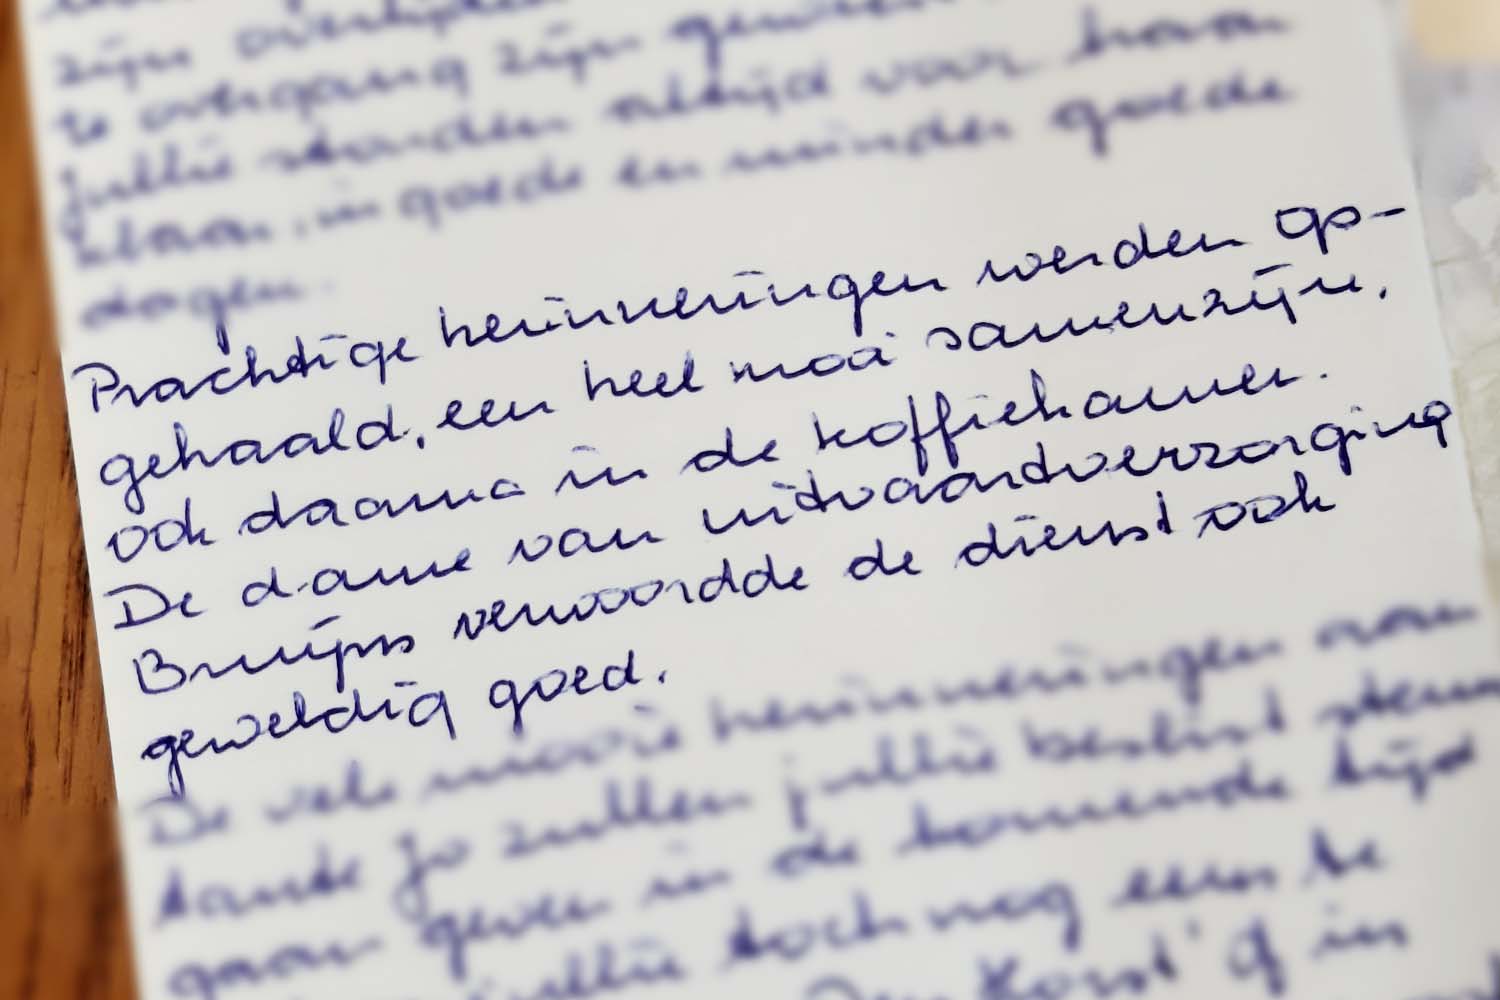 zijn
te overgang zijn
jullie stonden altijd voor haar
klaar, in goede en minder goede
dagen.
Prachtige herinneringen werden op-
gehaald, een heel mooi samenzijn,
ook daarna in de koffiekamer.
De dame van uitvaartverzorging
Bruijns verwoordde de dienst ook
geweldig goed.
De vele mooie herinneringen aan
tante Jo zullen jullie beslist steun
gaan geven in de komende tijd
jullie toch nog eens te
in